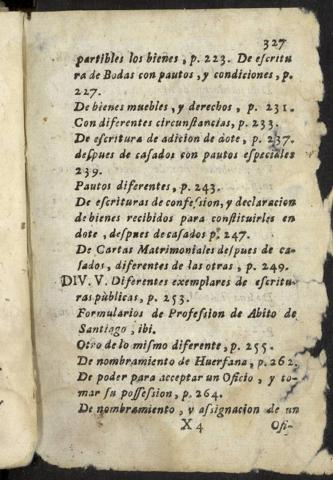 327
partibles los bienes, p. 223. De escritu
ra de Bodas con pautos, y condiciones, p.
227.
De bienes muebles, y derechos, p. 231.
Con diferentes circunstancias, p. 233.
De escritura de adicion de dote, p. 237.
despues de casados con pautos especiales
239.
Pautos diferentes, p. 243.
De escrituras de confession, y declaracion
de bienes recibidos para constituirles en
dote, despues de casados p. 247.
De Cartas Matrimoniales despues de ca-
sados, diferentes de las otras, p. 249.
DIV. V. Diferentes exemplares de escritu-
ras publicas, p. 253.
Formularios de Profession de Abito de
Santiago, ibi.
Otro de lo mismo diferente, p. 255.
De nombramiento de Huerfana, p. 262.
De poder para acceptar un Oficio, y to-
mar su possession, p. 264.
De nombramiento, y assignacion de un
X 4 Ofi-